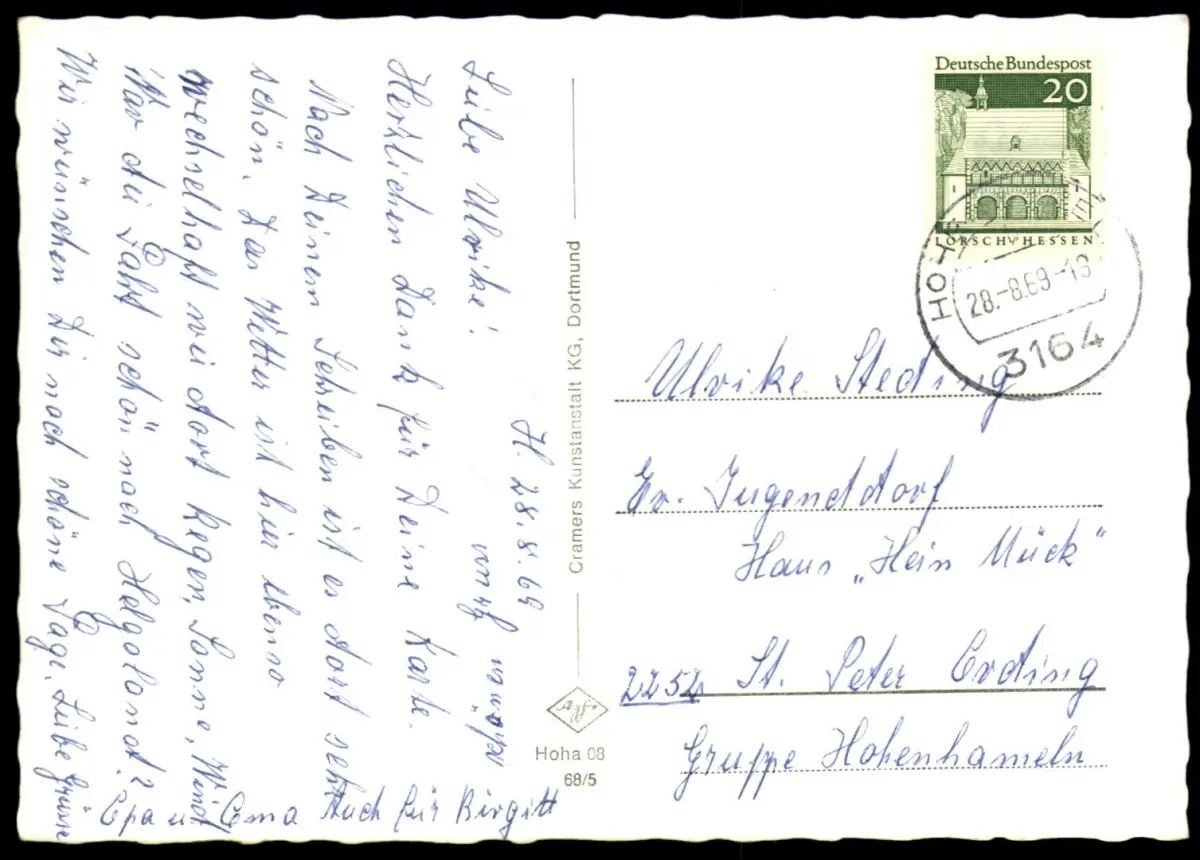 H. 28.8.69
Liebe Ulrike!
Herzlichen Dank für Deine Karte.
Nach Deinem Schreiben ist es dort sehr
schön. Das Wetter ist hier ebenso
wechselhaft wie dort Regen, Sonne, Wind
War die Fahrt schön nach Helgoland?
Wir wünschen Dir noch schöne Tage. Liebe Grüsse
Opa u. Oma Auch für Birgitt
Cramers Kunstanstalt KG, Dortmund
Hoha 08
68/5
Deutsche Bundespost
20
LORSCH/HESSEN
28.-8.69-18
3164
Ulrike Steding
Ev. Jugenddorf
Haus „Hein Mück"
2252 St. Peter Ording
Gruppe Hohenhameln